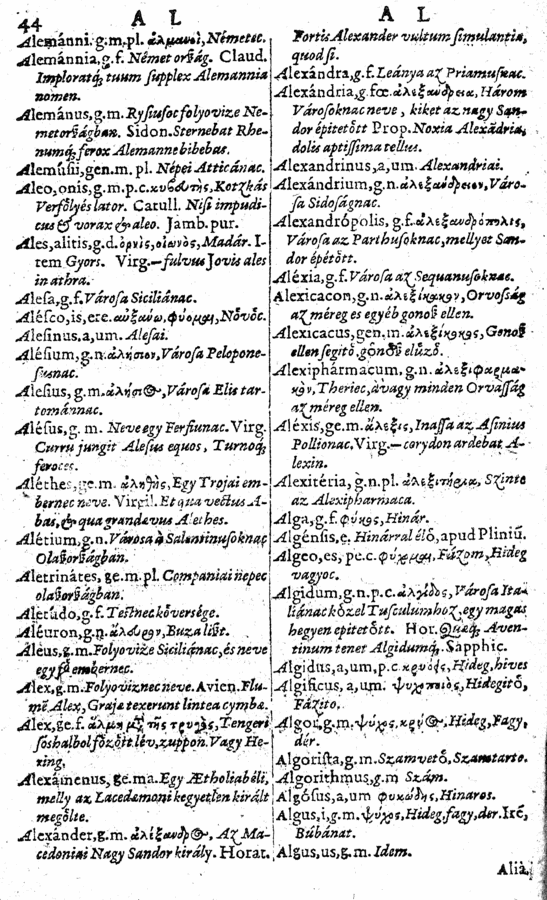 44 A L
Alemánni. g.m.pl. ἀλμανοὶ, Németec.
Alemánnia, g.f. Német orſzág. Claud.
Imploratq́; tuum ſupplex Alemannia
nomen.
Alemánus, g.m. Ryſiuſoc folyovize Ne-
metorſzágban. Sidon. Sternebat Rhe-
numq́; ferox Alemanne bibebas.
Alemúſii, gen.m. pl. Népei Atticánac.
Aleo, onis, g.m.p.c. κυβευτὴς, Kotzkás
Verfőlyés lator. Catull. Niſi impudi-
cus & vorax & aleo. Jamb. pur.
Ales, alitis, g.d. ὄρνις, οἰωνὸς, Madár. I-
tem Gyors. Virg.—fulvus Jovis ales
in æthra.
Aleſa, g.f. Városa Siciliánac.
Aléſco, is, ere. αὐξάνω, φύομαι, Nőuőc.
Aleſinus, a, um. Aleſai.
Aléſium, g.n. ἀλήσιον, Városa Pelopone-
ſusnac.
Aleſius, g.m. ἀλήσιος, Városa Elis tar-
tománnac.
Aléſus, g. m. Neve egy Ferfiunac. Virg.
Curru jungit Aleſus equos, Turnoq́;
feroces.
Aléthes, ge.m. ἀληθὴς, Egy Trojai em-
bernec neve. Virgil. Et qua vectus A-
bas, & qua grandævus Alethes.
Alétium, g.n. Városa à Salentinusoknac
Olaſzorſzágban.
Aletrinátes, ge.m.pl. Companiai nepec
olaſzorſzágban.
Aletúdo, g.f. Teſtnec kővérſége.
Aléuron, g.n. ἄλευρον, Buza liſzt.
Aleus, g.m. Folyovize Siciliánac, és neve
egy fő embernec.
Alex, g.m. Folyoviznec neve. Avien. Flu-
mē Alex, Grajæ texerunt lintea cymbæ.
Alex, ge.f. ἅλμη μζ τῆς τρυγὸς, Tengeri
ſoshalbol főzőtt lév, zuppon. Vagy He-
ring.
Alexámenus, ge.ma. Egy Ætholiabéli,
melly az Lacedæmoni kegyetlen királt
megőlte.
Alexánder, g.m. ἀλέξανδρος, Az Ma-
cedoniai Nagy Sandor király. Horat.
A L
Fortis Alexander vultum ſimulantia,
quod ſi.
Alexándra, g.f. Leánya az Priamuſnac.
Alexándria, g.fœ. ἀλεξανδρεια, Három
Városoknac neve, kiket az nagy San-
dor épitetőtt Prop. Noxia Alexādria,
dolis aptiſſima tellus.
Alexandrinus, a, um. Alexandriai.
Alexándrium, g.n. ἀλεξάνδρειον, Váro-
ſa Sidoſágnac.
Alexandrópolis, g.f. ἀλεξανδρόπολις,
Városa az Parthuſoknac, mellyet San-
dor épétőtt.
Aléxia, g.f. Városa az Sequanuſoknac.
Alexicacon, g.n. ἀλεξίκακον, Orvoſság
az méreg es egyéb gonoſz ellen.
Alexicacus, gen.m. ἀλεξίκακος, Gonoſz
ellen ſegitő, gonoſz elűző.
Alexiphármacum, g.n. ἀλεξιφάρμα-
κὸν, Theriec, avagy minden Orvaſság
az méreg ellen.
Aléxis, ge.m. ἄλεξις, Inaſſa az Aſinius
Pollionac, Virg.—corydon ardebat A-
lexin.
Alexitéria, g.n.pl. ἀλεξιτήρια, Szinte
az Alexipharmaca.
Alga, g.f. φύκος, Hinár.
Algénſis, e, Hinárral élő, apud Pliniū.
Algeo, es, pe.c. φύχομαι, Fázom, Hideg
vagyoc.
Algidum, g.n.p.c. ἀλγιδος, Városa Ita-
liánac kőzel Tusculumhoz, egy magas
hegyen epitetőtt. Hor. Quæq́; Aven-
tinum tenet Algidumq́;. Sapphic.
Algidus, a, um, p.c. κρυὸς, Hideg, hives
Algificus, a, um. ψυχροποιὸς, Hidegitő,
Fázito.
Algor, g.m. ψύχος, κρύος, Hideg, Fagy,
dér.
Algoriſta, g.m. Szamvető, Szamtarto.
Algorithmus, g.m Szám.
Algóſus, a, um φυκώδης, Hinaros.
Algus, i, g.m. ψύχος, Hideg, fagy, der. Itē,
Búbánat.
Algus, us, g.m. Idem.
Alià,